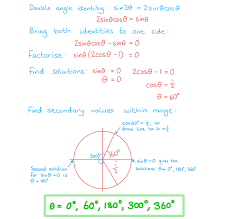 Double angle identity: sin2θ = 2sinθcosθ
2sinθcosθ = sinθ
Bring both identities to one side:
2sinθcosθ - sinθ = 0
Factorise: sinθ(2cosθ - 1) = 0
Find solutions: sinθ = 0 2cosθ - 1 = 0
θ = 0 cosθ = ½
θ = 60°
Find secondary values within range:
cos60° = ½, so
draw line to is = ½
300° 360°
½
Second solution
for sinθ = 0 is
θ = 180°
sinθ = 0 gives the
solutions θ = 0°, 180°, 360°
θ = 0°, 60°, 180°, 300°, 360°